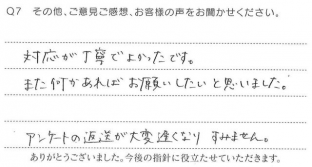 Q7 その他、ご意見ご感想、お客様の声をお聞かせください。
対応が丁寧でよかったです。
また何かあればお願いしたいと思いました。
アンケートの返送が大変遅くなり すみません。
ありがとうございました。今後の指針に役立たせていただきます。